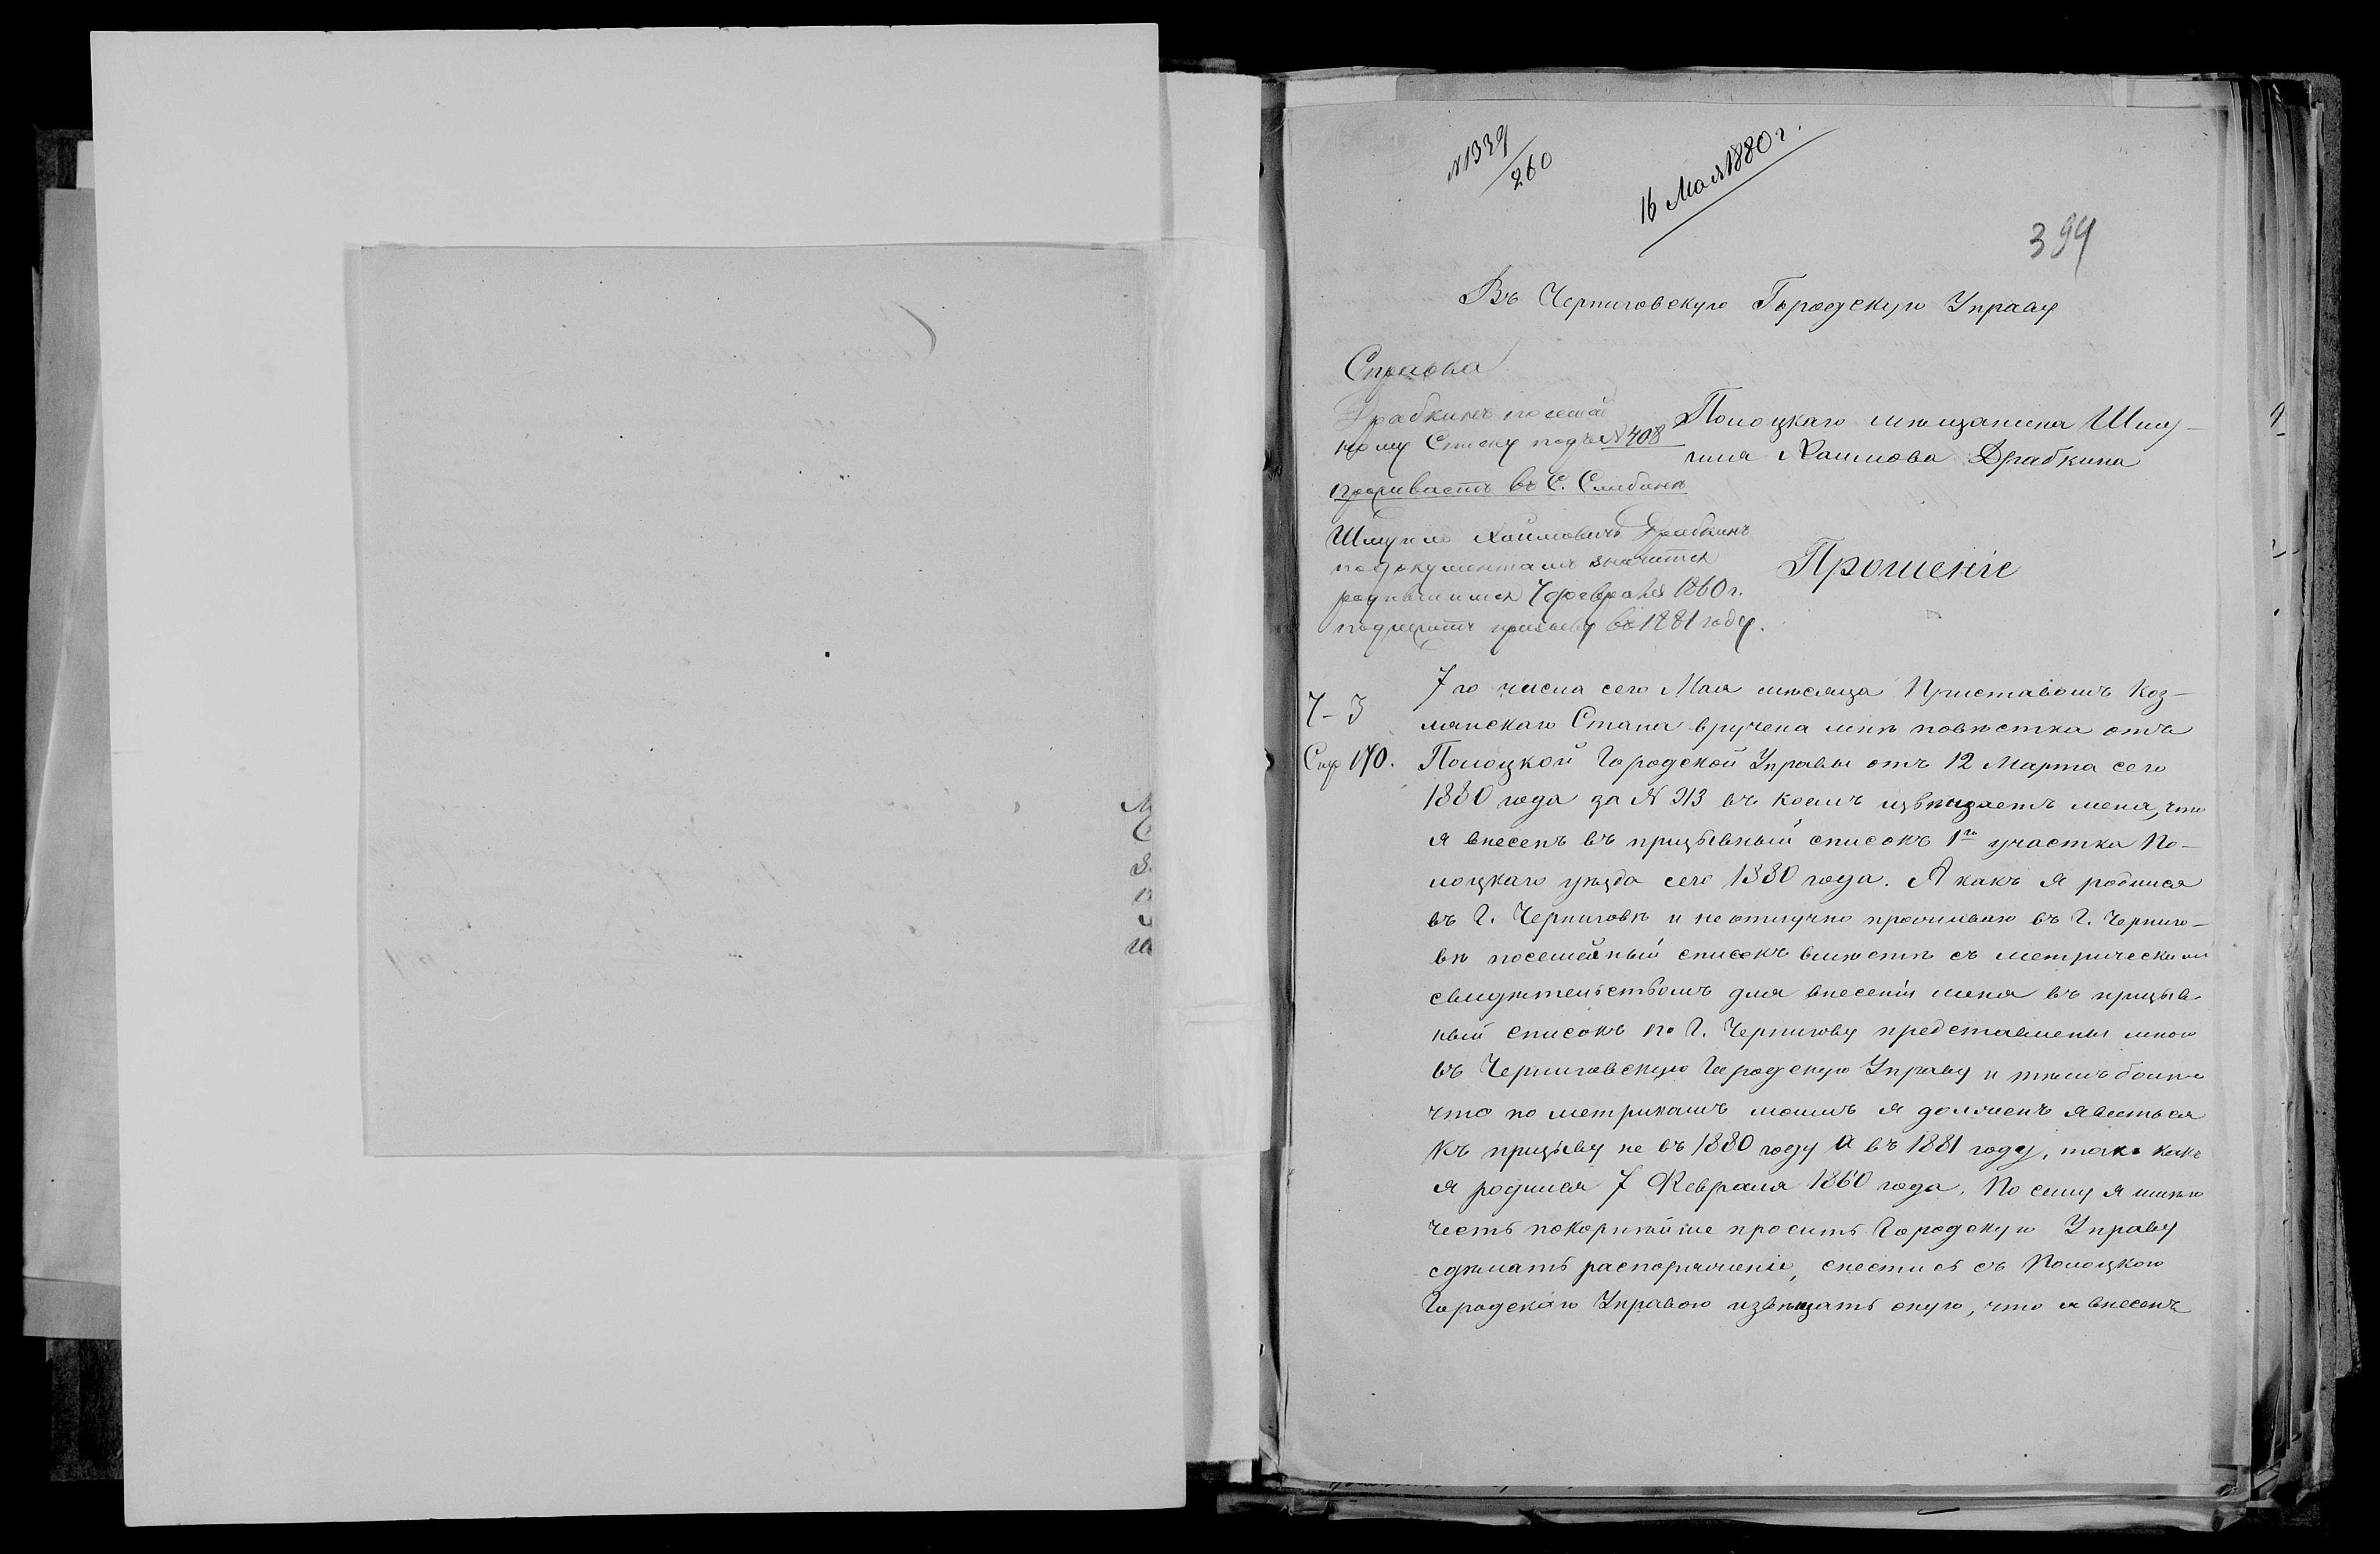 № 1339/260
16 Мая 1880 г.
394
Въ Черниговскую Городскую Управу
Справка
Драбкинъ по семей
ному Списку подъ № 408
проживаетъ въ С. Слабинѣ
Шмуило Хаимовичъ Драбкинъ
по документамъ значится
родившимся 7 февраля 1860 г.
подлежитъ призыву въ 1881 году.
Полоцкаго мѣщанина Шму-
лия Хаимова Драбкина
Прошеніе
7 го числа сего Мая мѣсяца Приставомъ Коз-
лянскаго Стана вручена мнѣ повѣстка отъ
Стр 170.
Полоцкой Городской Управы отъ 12 Марта сего
1880 года за № 313 въ коемъ извѣщаетъ меня, что
я внесенъ въ призывный списокъ 1го участка По-
лоцкаго уѣзда сего 1880 года. А какъ я родился
въ Г. Черниговѣ и неотлучно проживаю въ Г. Черниго-
вѣ посемейный списокъ вмѣстѣ съ метрическимъ
свидѣтельствомъ для внесенія меня въ призыв-
ный списокъ по Г. Чернигову представлены мною
въ Черниговскую Городскую Управу и тѣмъ болѣе
что по метрикамъ моимъ я долженъ явиться
къ призыву не въ 1880 году а въ 1881 году, такъ какъ
я родился 7 Февраля 1860 года. По сему я имѣю
честь покорнѣйше просить Городскую Управу
сдѣлать распоряженіе, снестись съ Полоцкою
Городскою Управою извѣщать оную, что я внесенъ